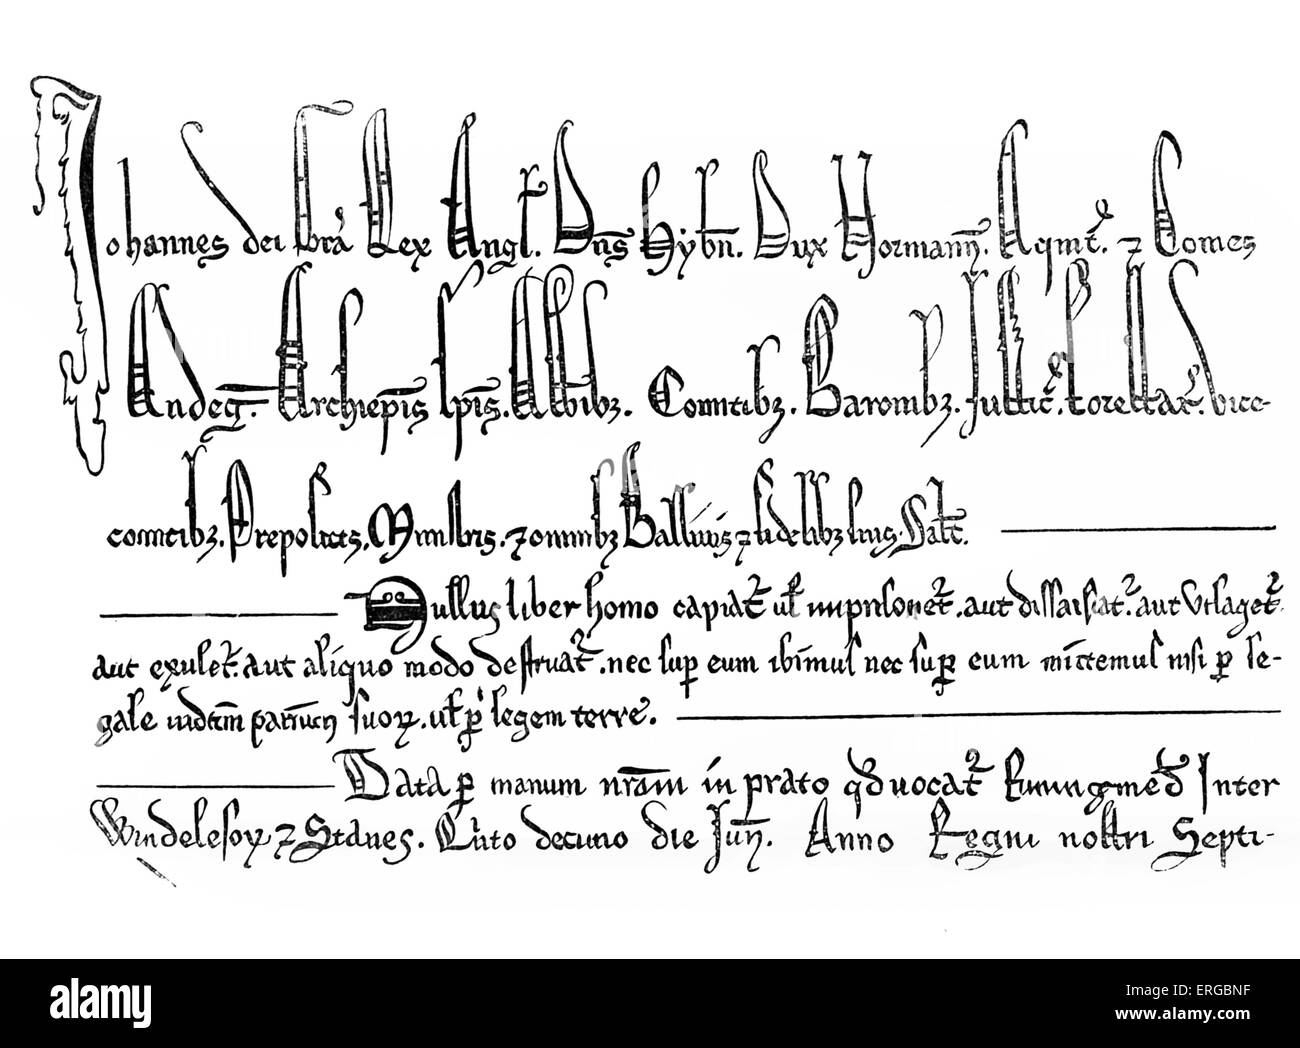 Johannes dei grã Rex Angl. Dñs Hybñ. Dux Normanñ. Aqiut̃. ⁊ Comes
Andeg̃. Archiep̃is Ep̃is. Abb̃ibꝫ. Comitibꝫ. Baronibꝫ. Justic̃. Forestar̃. vice-
comitibꝫ. Prepositis. Ministris. ⁊ omnibꝫ Ballivis ⁊ fidelibꝫ suis. Salt̃.
Nullus liber homo capiat᷑ uł imprisonet᷑. aut dissaisiat᷑. aut utlaget᷑.
aut exulet᷑. aut aliquo modo destruat᷑. nec sup eum ibimus nec sup eum mittemus nisi ꝑ le-
gale iudic̃m parium suoꝝ. uł ꝑ legem terre.
Data ꝑ manum nr̃am in prato qd̃ vocat᷑ Runingmed̃ Inter
Windelesoꝝ ⁊ Stanes. Q̃into decimo die Juñ. Anno Regni nostri Septi-
alamy
Image ID: ERGBNF
www.alamy.com